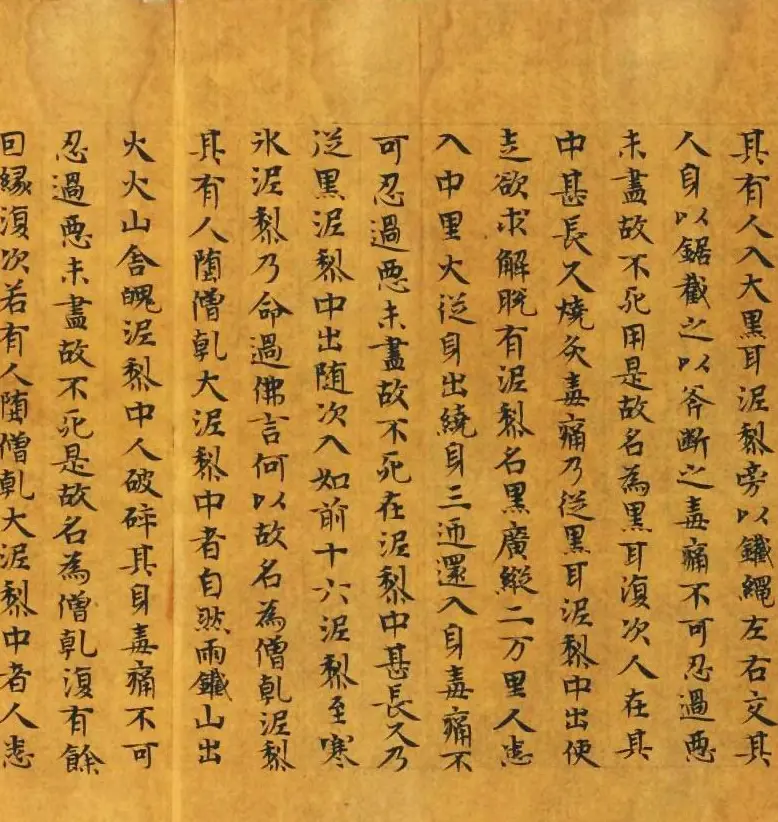 其有人入大黑耳泥犁旁以鐵繩左右交其
人身以鋸截之以斧斷之毒痛不可忍過惡
未盡故不死用是故名為黑耳復次人在其
中甚長久燒炙毒痛乃從黑耳泥犁中出便
走欲求解脫有泥犁名黑廣縱二万里人悉
入中黑火從身出繞身三迊還入身毒痛不
可忍過惡未盡故不死在泥犁中甚長久乃
從黑泥犁中出随次入如前十六泥犁至寒
氷泥犁乃命過佛言何以故名為僧乹泥犁
其有人墮僧乹大泥犁中者自然兩鐵山出
火火山合醜泥犁中人破碎其身毒痛不可
忍過惡未盡故不死是故名為僧乹復有餘
因緣復次若有人墮僧乹大泥犁中者人悉